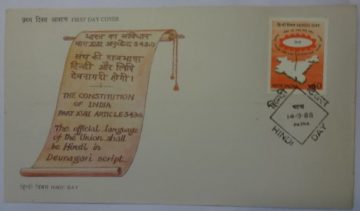 प्रथम दिवस आवरण FIRST DAY COVER
भारत का संविधान
भाग XVII अनुच्छेद 343(1)
संघ की राजभाषा
हिन्दी और लिपि
देवनागरी होगी।
THE CONSTITUTION
OF INDIA
PART XVII ARTICLE 343(1)
The official language
of the Union shall
be Hindi in
Devnagari script.
हिन्दी दिवस HINDI DAY
हिन्दी दिवस
पटना
14-9-88
PATNA
HINDI DAY